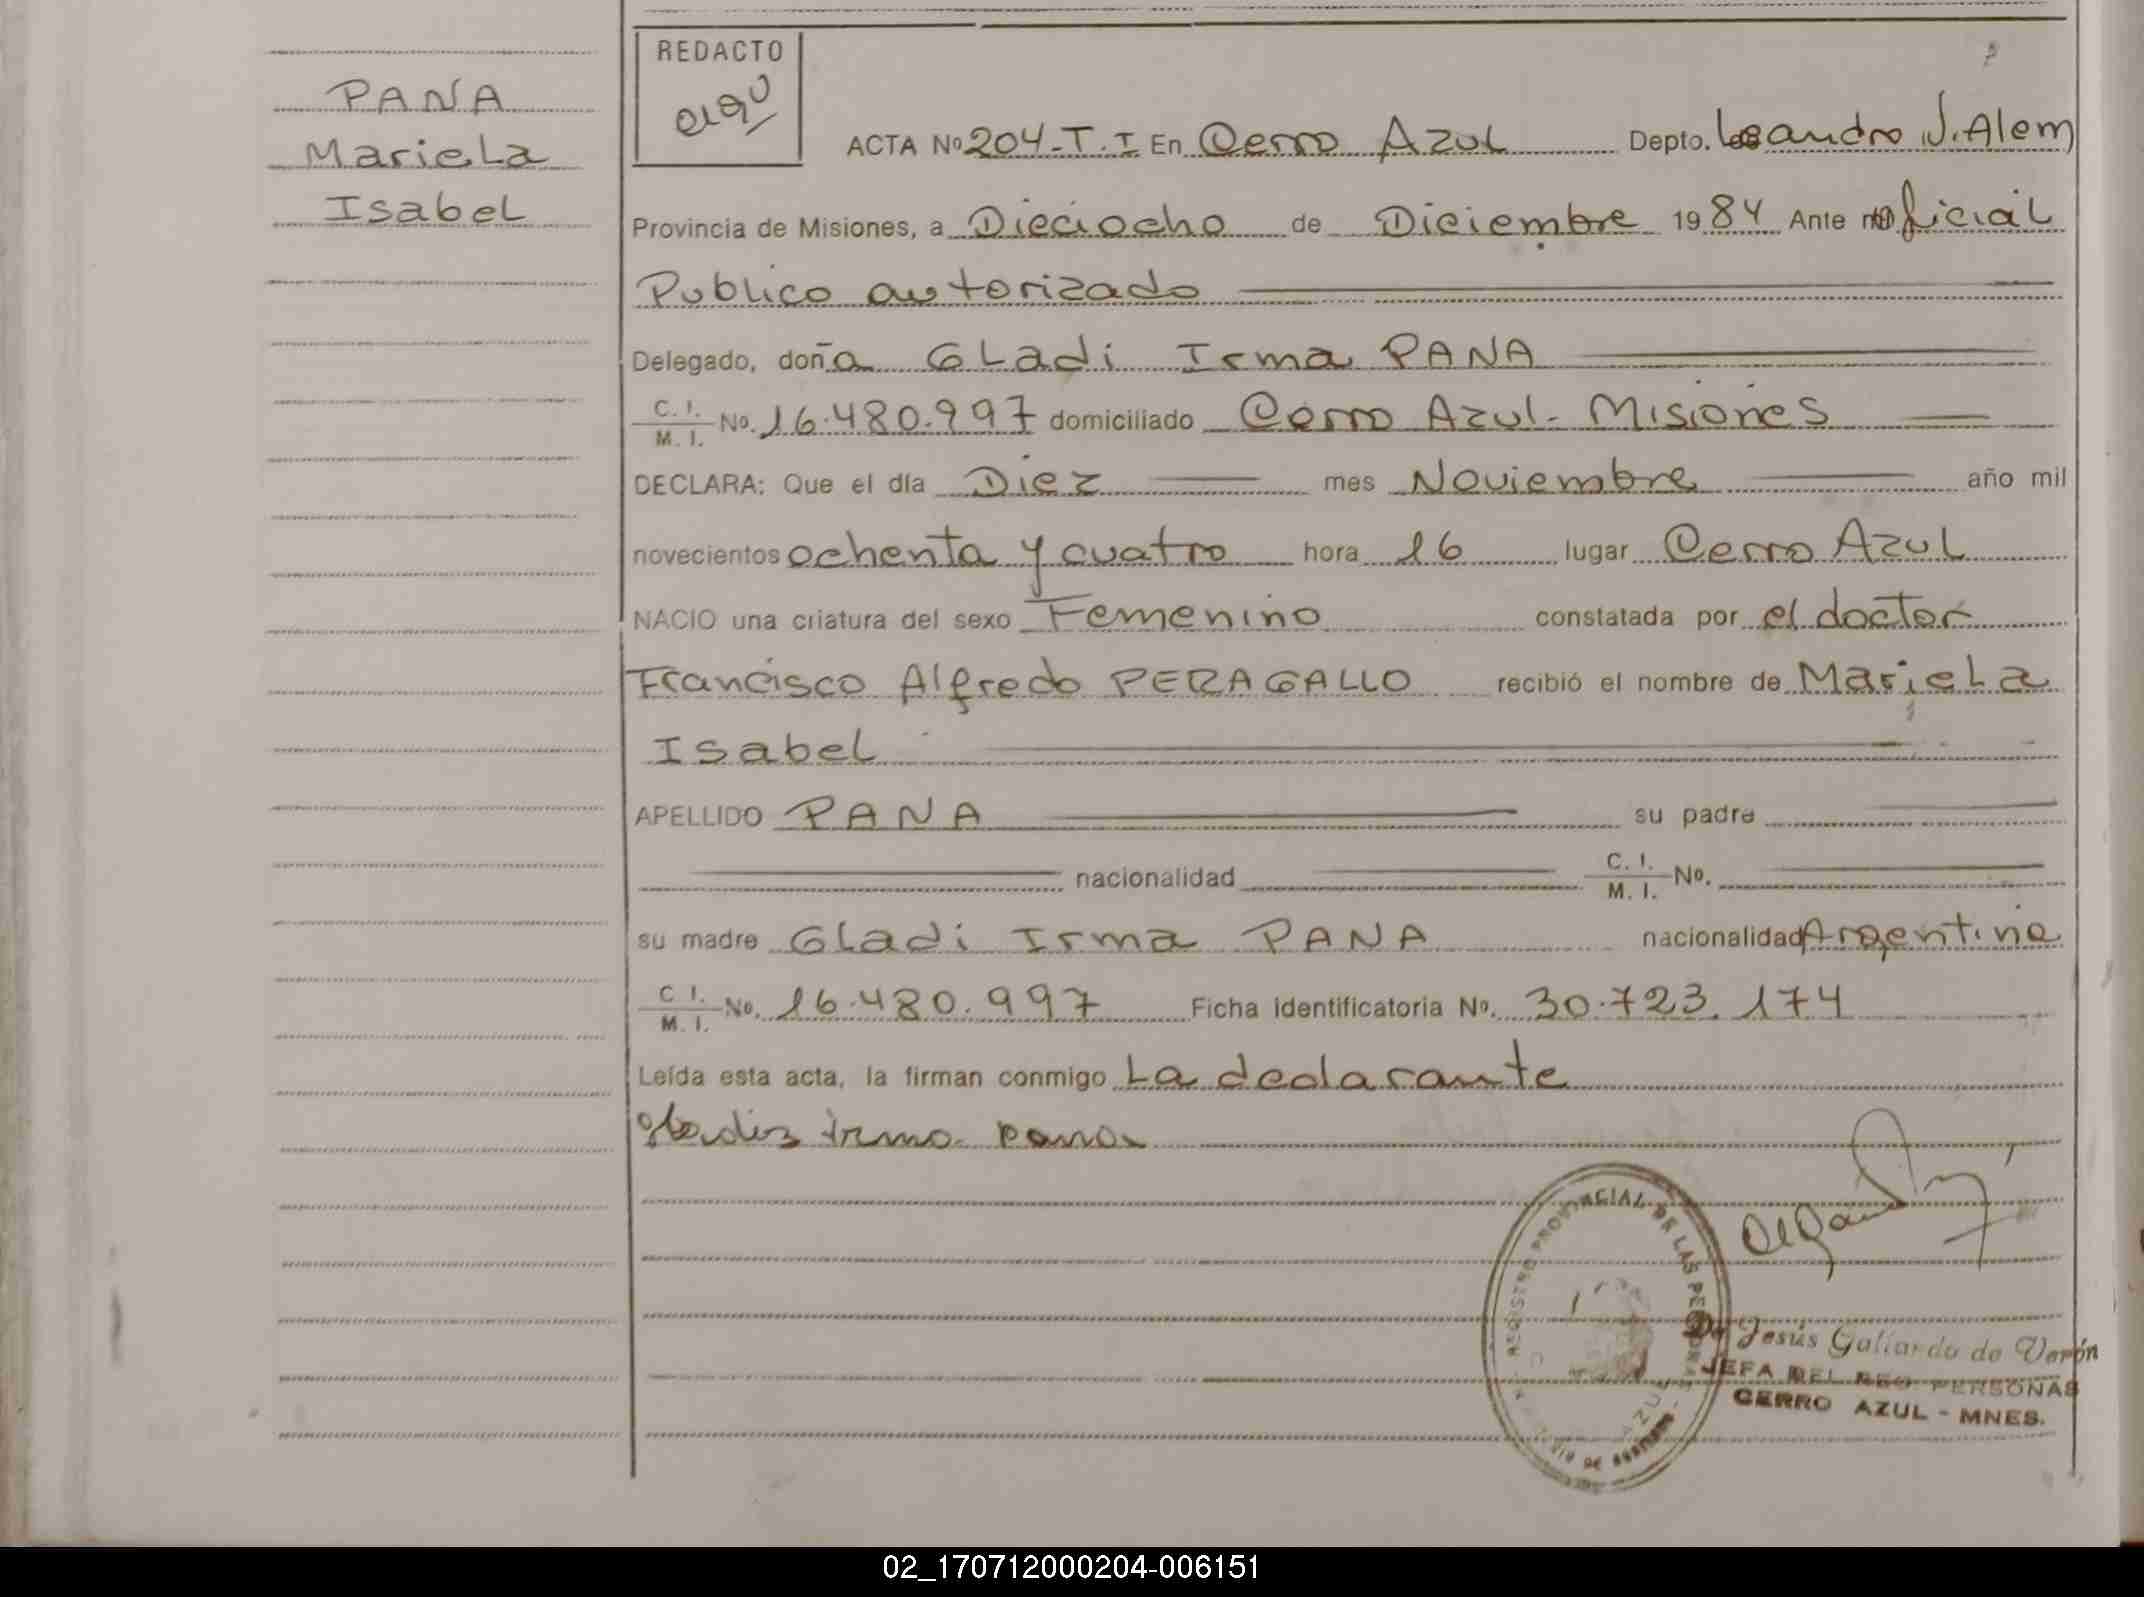 PANA
Mariela
Isabel
REDACTO
ACTA Nº 204-T.I En Cerro Azul Depto. Leandro N. Alem
Provincia de Misiones, a Dieciocho de Diciembre 1984 Ante oficial
Publico autorizado
Delegado, doña Gladi Irma PANA
C. I. / M. I. No. 16.480.997 domiciliado Cerro Azul - Misiones
DECLARA: Que el día Diez mes Noviembre año mil
novecientos ochenta y cuatro hora 16 lugar Cerro Azul
NACIO una criatura del sexo Femenino constatada por el doctor
Francisco Alfredo PERAGALLO recibió el nombre de Mariela
Isabel
APELLIDO PANA su padre
nacionalidad C. I. / M. I. Nº.
su madre Gladi Irma PANA nacionalidad Argentina
C. I. / M. I. No. 16.480.997 Ficha identificatoria Nº. 30.723.174
Leída esta acta, la firman conmigo La declarante
Gladiz irma pana
REGISTRO PROVINCIAL DE LAS PERSONAS
Jesús Galiardo de Verón
JEFA DEL REG PERSONAS
CERRO AZUL - MNES.
02_170712000204-006151